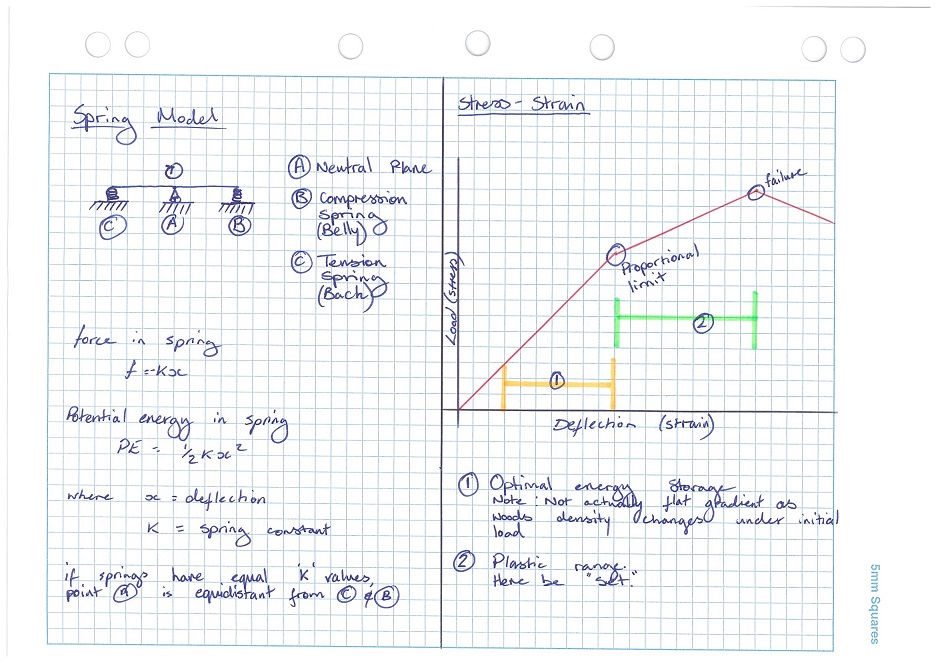 Spring Model
P
C A B
A Neutral Plane
B Compression
Spring
(Belly)
C Tension
Spring
(Back)
force in spring
f = -Kx
Potential energy in spring
PE = 1/2 K x²
where x = deflection
K = spring constant
if springs have equal 'K' values,
point a is equidistant from C & B
Stress - Strain
failure
Proportional
limit
Load (stress)
2
1
Deflection (strain)
1 Optimal energy storage
Note: Not actually flat gradient as
woods density changes under initial
load
2 Plastic range.
Here be "set."
5mm Squares